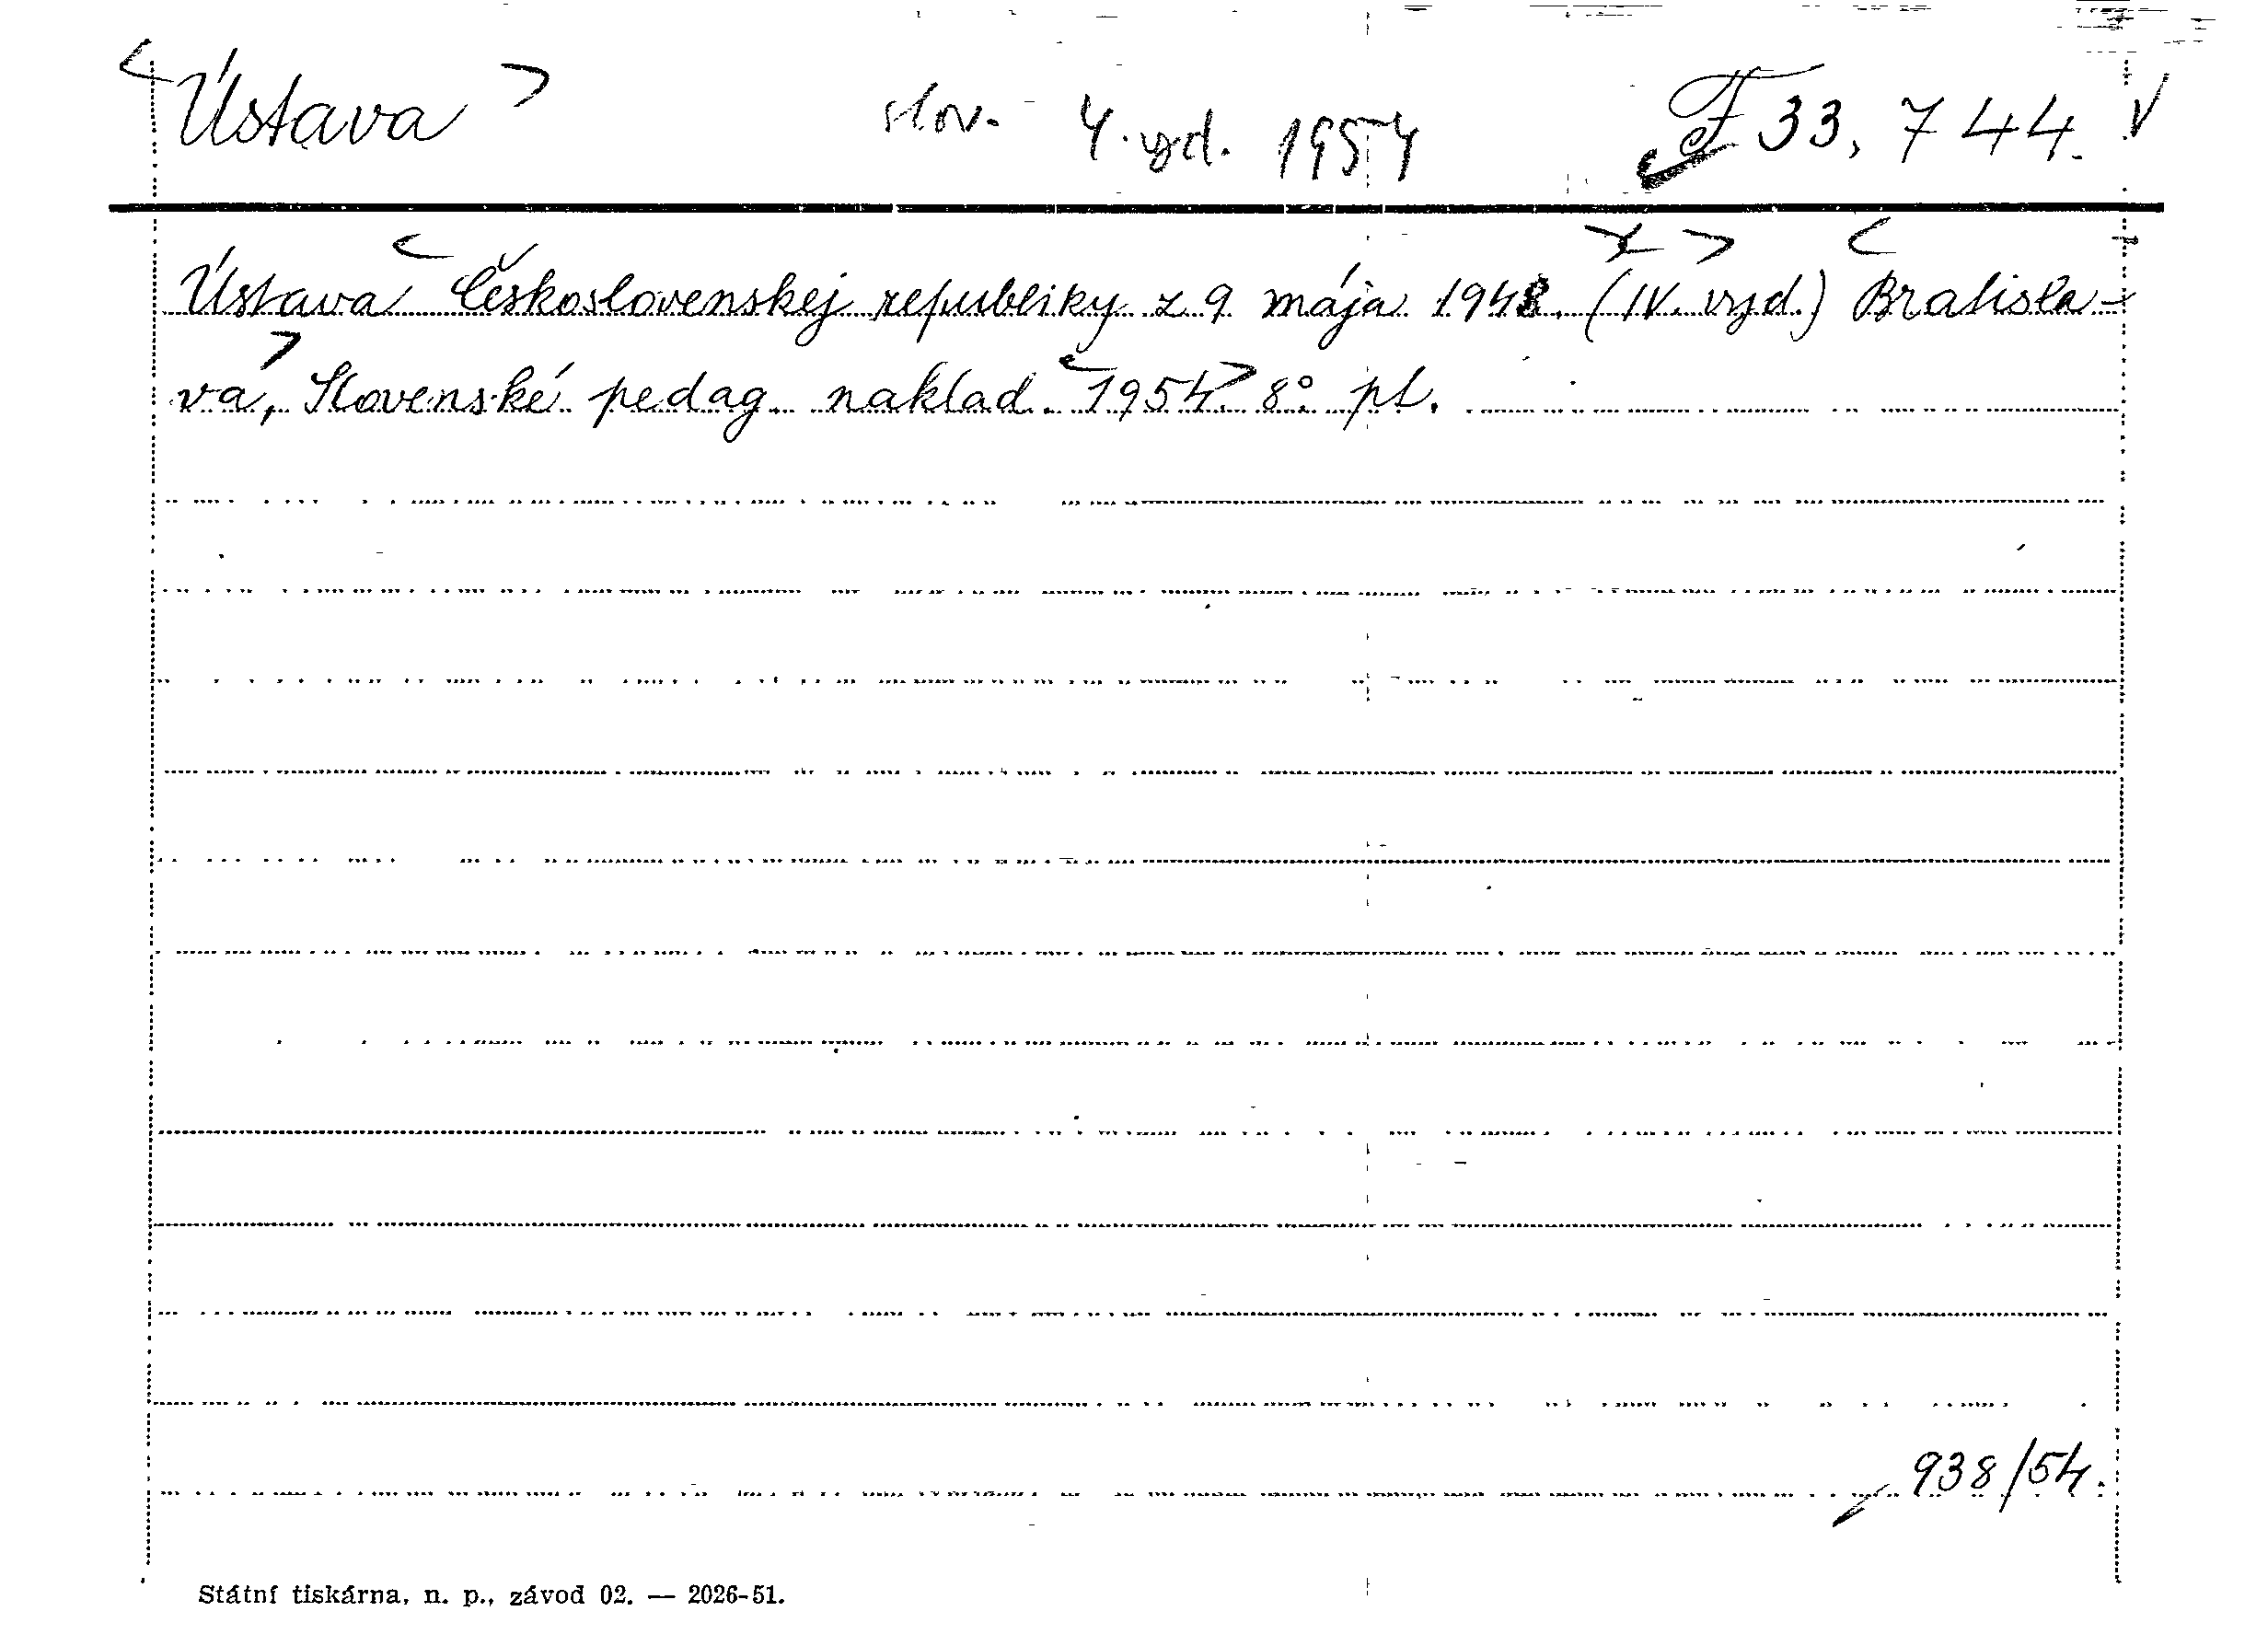 <Ústava> slov. 4. vyd. 1954 F 33, 744. V
Ústava <Československej republiky z 9 mája 1948. (IV. vyd.)> <Bratisla-
va,> Slovenské pedag. naklad. <1954> 8° pl.
938/54.
Státní tiskárna, n. p., závod 02. — 2026-51.